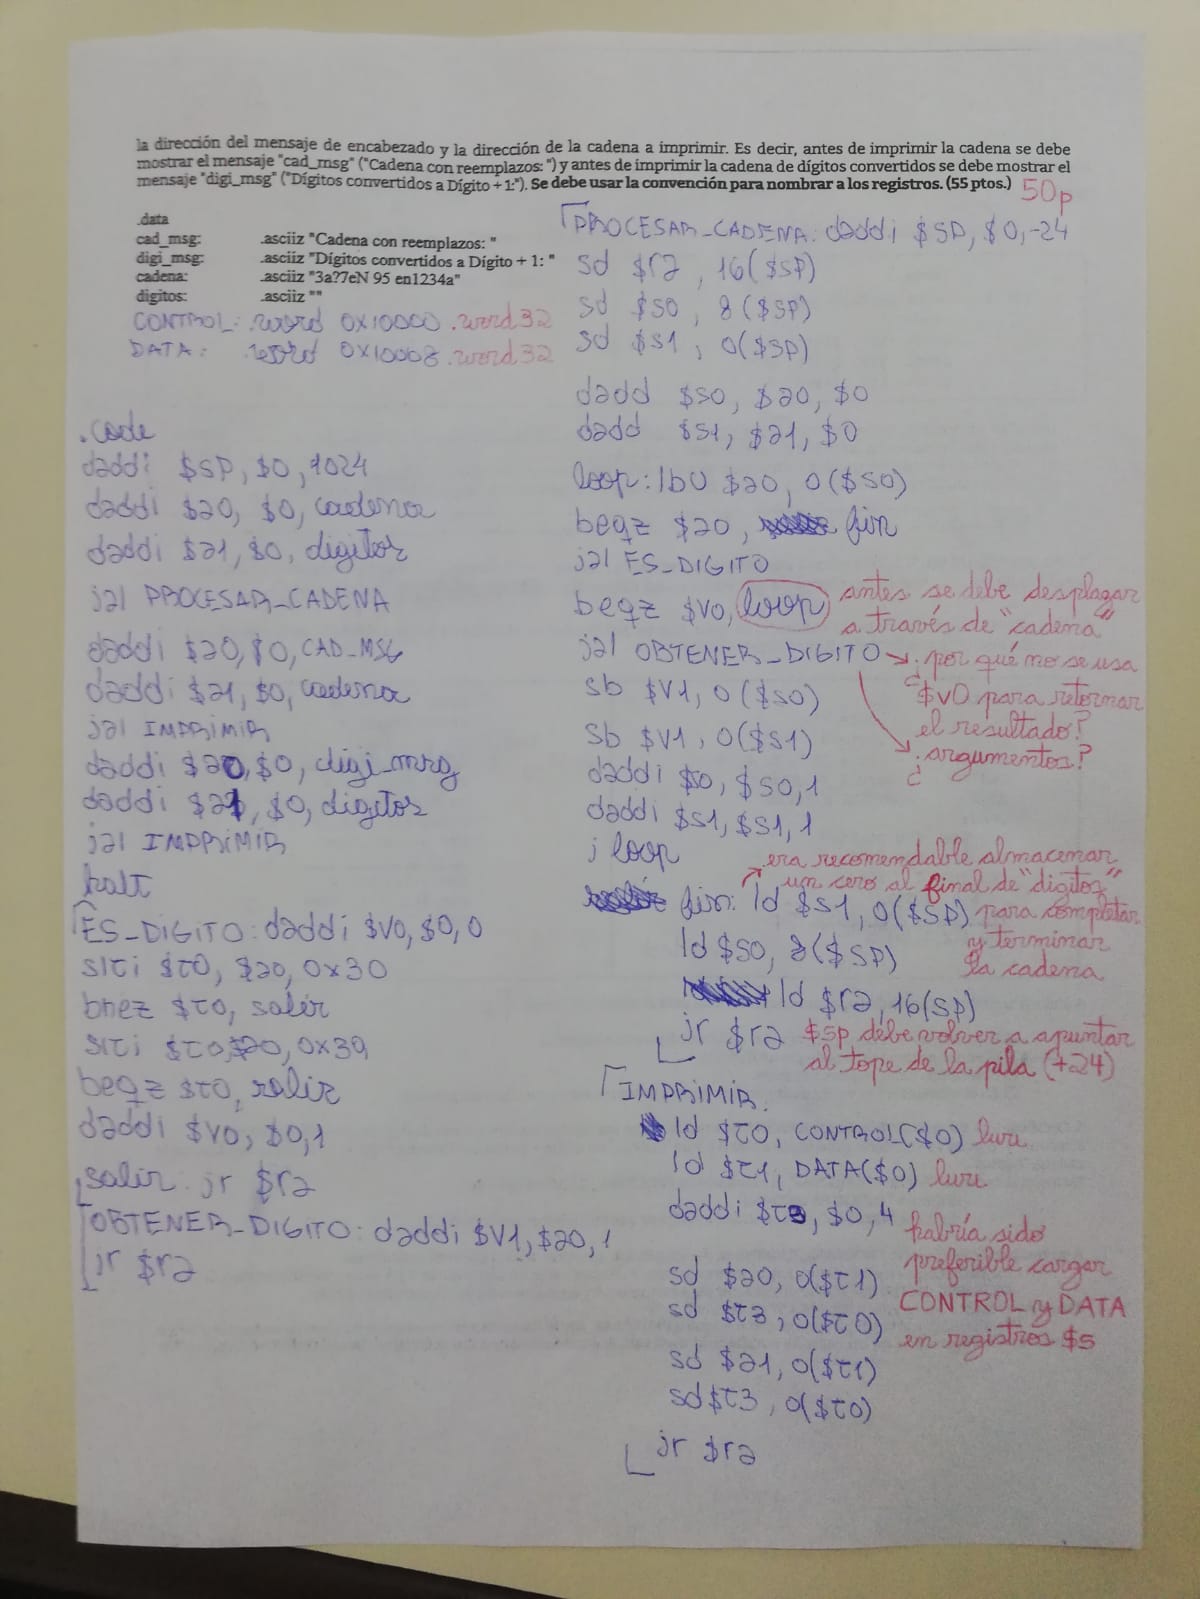 la dirección del mensaje de encabezado y la dirección de la cadena a imprimir. Es decir, antes de imprimir la cadena se debe
mostrar el mensaje "cad_msg" ("Cadena con reemplazos: ") y antes de imprimir la cadena de dígitos convertidos se debe mostrar el
mensaje "digi_msg" ("Dígitos convertidos a Dígito + 1:"). Se debe usar la convención para nombrar a los registros. (55 ptos.) 50p
.data
cad_msg: .asciiz "Cadena con reemplazos: "
digi_msg: .asciiz "Dígitos convertidos a Dígito + 1: "
cadena: .asciiz "3a?7eN 95 en1234a"
digitos: .asciiz ""
CONTROL: .word 0x10000 .word32
DATA: .word 0x10008 .word32
.code
daddi $SP, $0, 1024
daddi $a0, $0, cadena
daddi $a1, $0, digitos
jal PROCESAR_CADENA
daddi $a0, $0, CAD_MSG
daddi $a1, $0, cadena
jal IMPRIMIR
daddi $a0, $0, digi_msg
daddi $a1, $0, digitos
jal IMPRIMIR
halt
ES_DIGITO: daddi $V0, $0, 0
slti $t0, $a0, 0x30
bnez $t0, salir
slti $t0, $a0, 0x39
beqz $t0, salir
daddi $V0, $0, 1
salir: jr $ra
OBTENER_DIGITO: daddi $V1, $a0, 1
jr $ra
PROCESAR_CADENA: daddi $SP, $0, -24
sd $ra, 16($SP)
sd $S0, 8($SP)
sd $S1, 0($SP)
dadd $S0, $a0, $0
dadd $S1, $a1, $0
loop: lbu $a0, 0($S0)
beqz $a0, fin
jal ES_DIGITO
beqz $V0, loop antes se debe desplazar
a través de "cadena"
jal OBTENER_DIGITO → ¿por qué no se usa
$V0 para retornar
el resultado?
¿argumentos?
sb $V1, 0($S0)
sb $V1, 0($S1)
daddi $S0, $S0, 1
daddi $S1, $S1, 1
j loop
era recomendable almacenar
un cero al final de "digitos"
para completar
y terminar
la cadena
fin: ld $S1, 0($SP)
ld $S0, 8($SP)
ld $ra, 16(SP)
jr $ra $sp debe volver a apuntar
al tope de la pila (+24)
IMPRIMIR:
ld $t0, CONTROL($0) lwu
ld $t1, DATA($0) lwu
daddi $t3, $0, 4
habría sido
preferible cargar
CONTROL y DATA
en registros $s
sd $a0, 0($t1)
sd $t3, 0($t0)
sd $a1, 0($t1)
sd $t3, 0($t0)
jr $ra